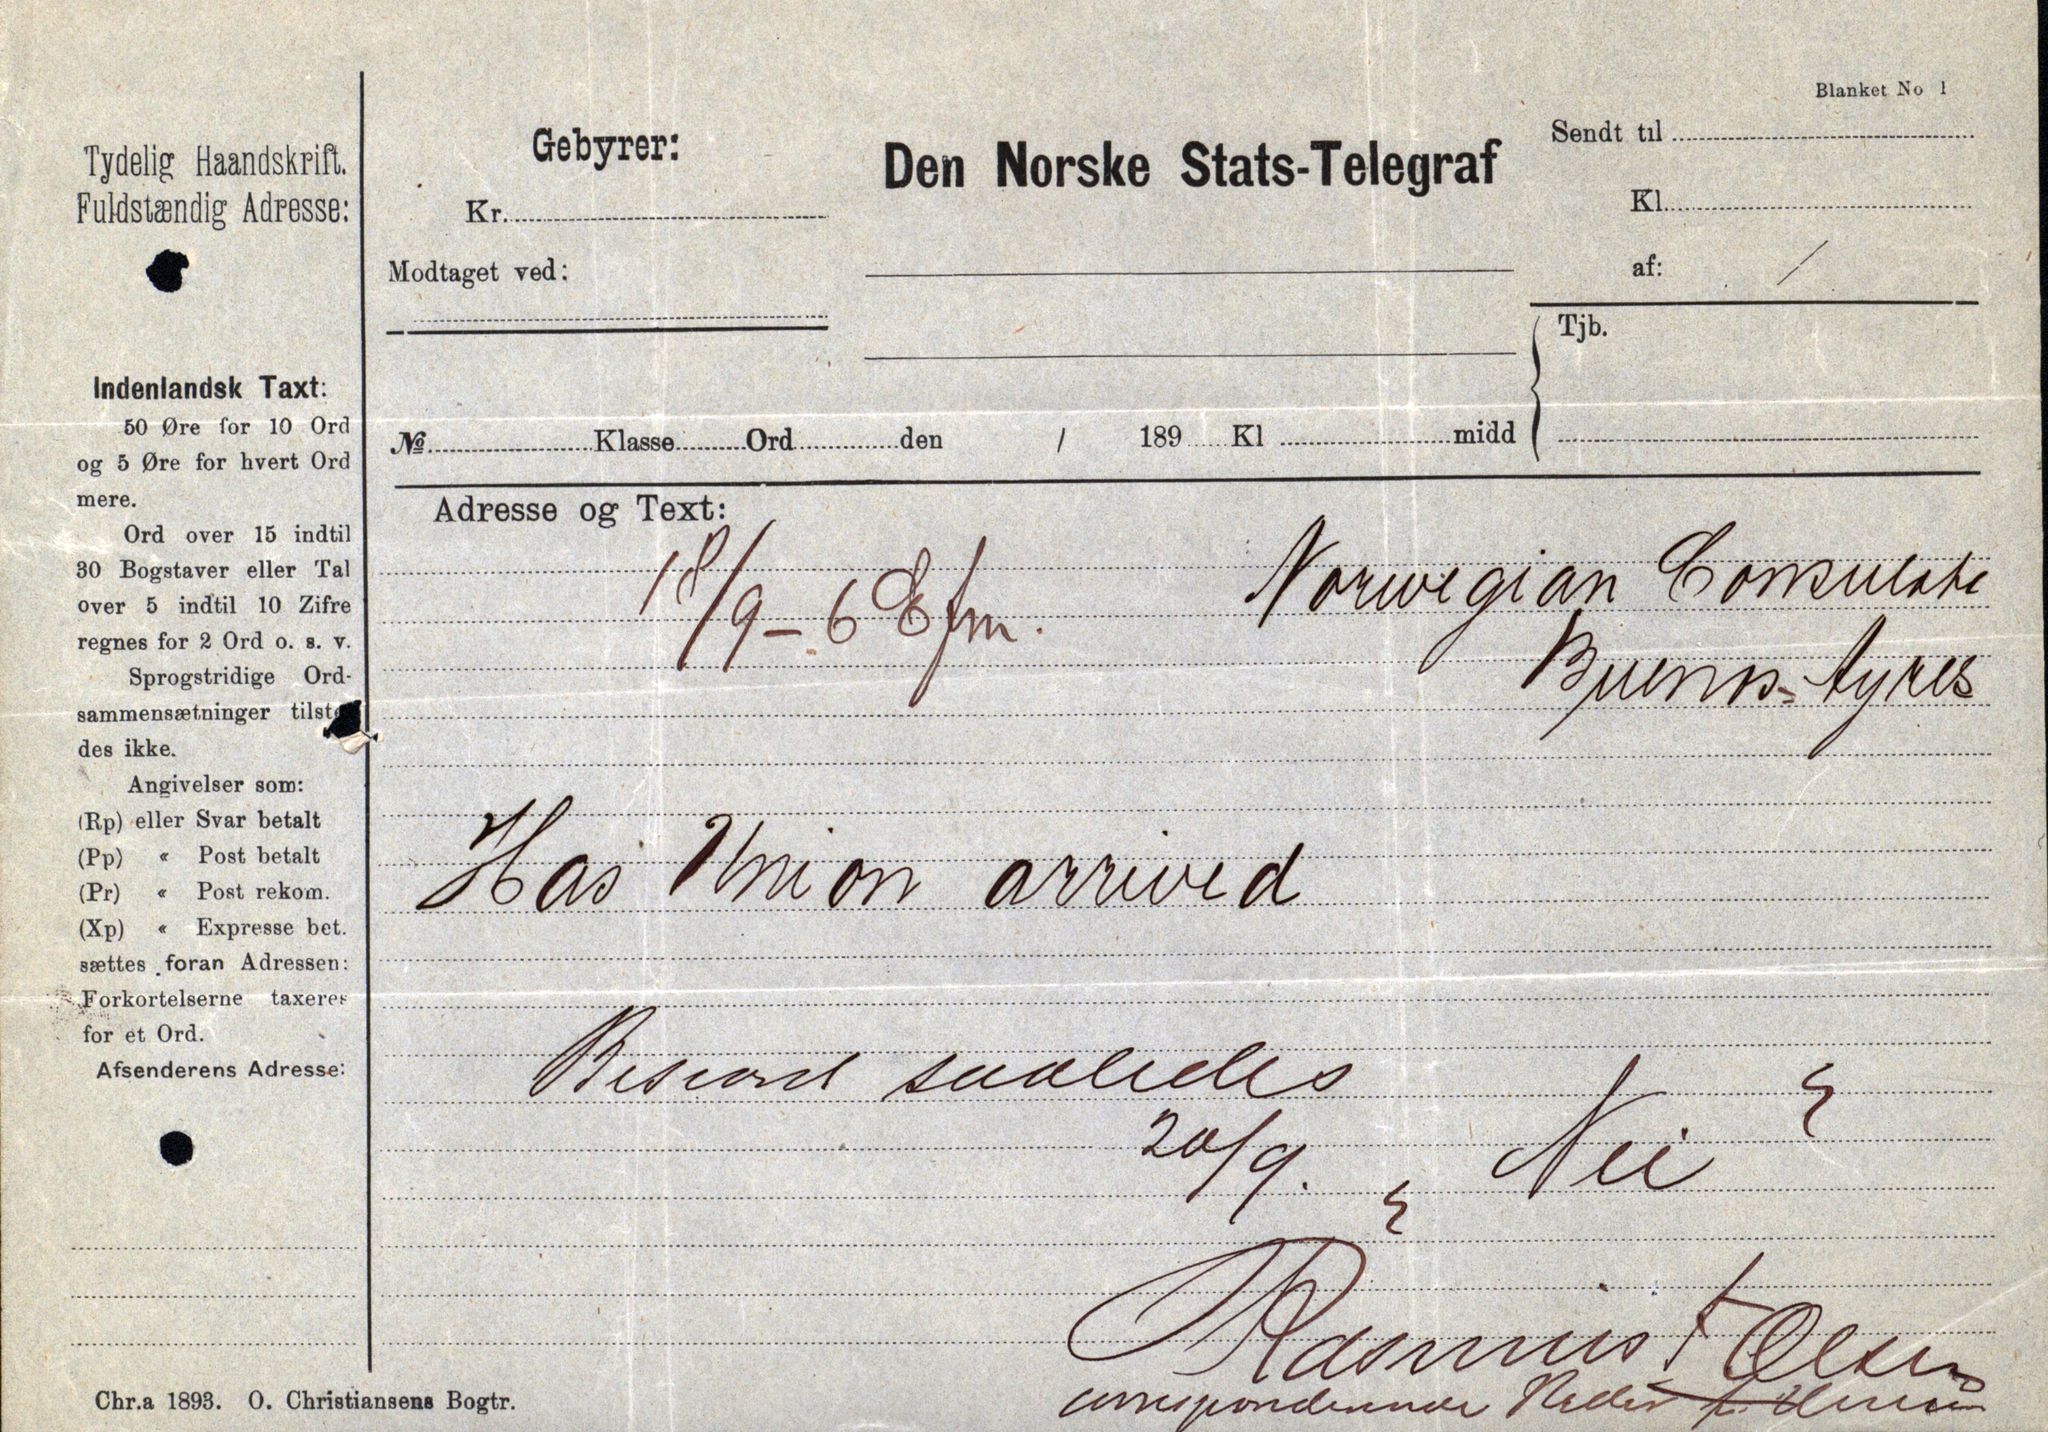 Blanket No 1
Tydelig Haandskrift.
Fuldstændig Adresse:
Gebyrer:
Kr.
Modtaget ved:
Den Norske Stats-Telegraf
Sendt til
Kl.
af: /
Tjb.
№ Klasse Ord den / 189 Kl midd
Indenlandsk Taxt:
50 Øre for 10 Ord
og 5 Øre for hvert Ord
mere.
Ord over 15 indtil
30 Bogstaver eller Tal
over 5 indtil 10 Zifre
regnes for 2 Ord o. s. v.
Sprogstridige Ord-
sammensætninger tilste
des ikke.
Angivelser som:
(Rp) eller Svar betalt
(Pp) « Post betalt
(Pr) « Post rekom.
(Xp) « Expresse bet.
sættes foran Adressen:
Forkortelserne taxeres
for et Ord.
Afsenderens Adresse:
Adresse og Text:
18/9 - 6 Efm.
Norwegian Consulate
Buenos-Ayres
Has Union arrived
Besvaret saaledes
20/9. Nei
Rasmus F Olsen
corresponderende Reder f. Union
Chr.a 1893. O. Christiansens Bogtr.